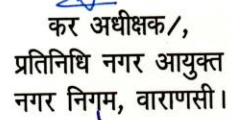 कर अधीक्षक/,
प्रतिनिधि नगर आयुक्त
नगर निगम, वाराणसी।